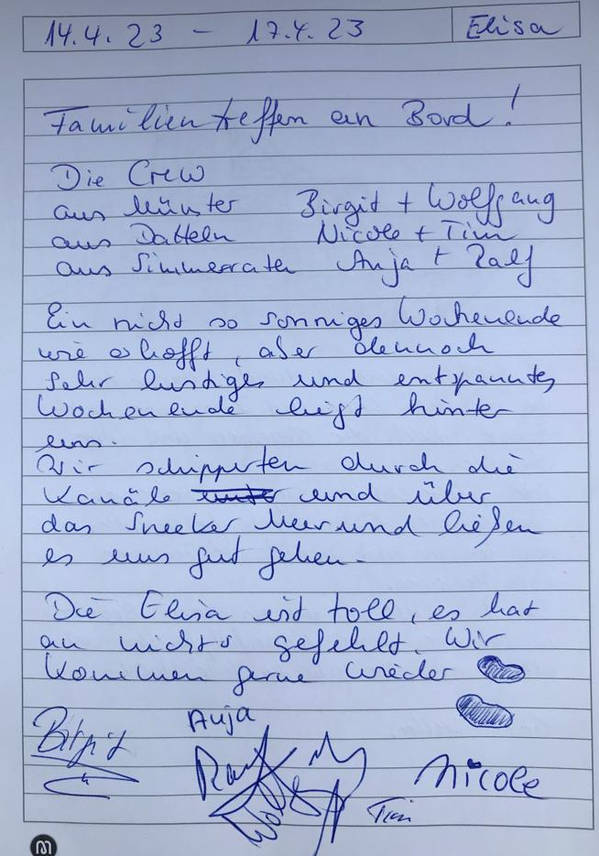 14.4.23 – 17.4.23 Elisa
Familientreffen an Bord!
Die Crew
aus Münster Birgit + Wolfgang
aus Datteln Nicole + Tim
aus Simmerraten Anja + Ralf
Ein nicht so sonniges Wochenende
wie erhofft, aber dennoch
sehr lustiges und entspanntes
Wochenende liegt hinter
uns.
Wir schipperten durch die
Kanäle und über
das Sneeker Meer und ließen
es uns gut gehen.
Die Elisa ist toll, es hat
an nichts gefehlt. Wir
kommen gerne wieder
Anja
Birgit
Ralf
Wolf
Nicole
Tim